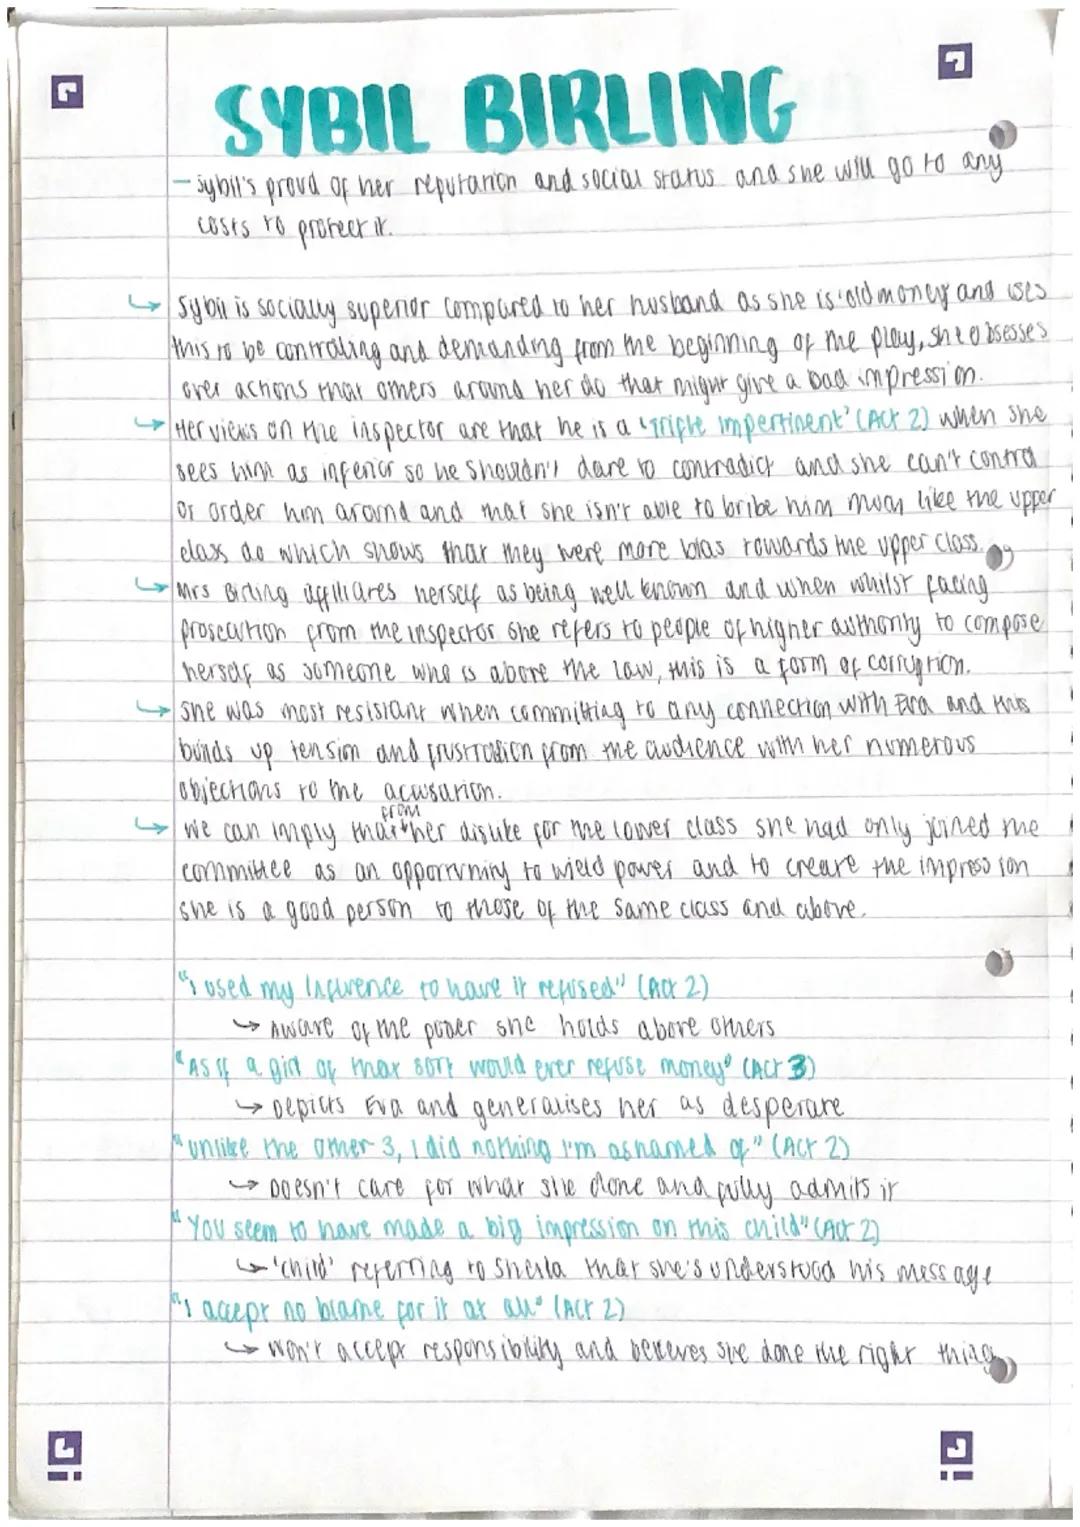 SYBIL BIRLING
- Sybil's proud of her reputation and social status and she will go to any
costs to protect it.
↳ Sybil is socially superior compared to her husband as she is 'old money' and uses
this to be controling and demanding from the beginning of the play, she obsesses
over actions that others around her do that might give a bad impression.
↳ Her views on the inspector are that he is a 'Trifle impertinent' (Act 2) when she
sees him as inferior so he shouldn't dare to contradict and she can't control
or order him around and that she isn't able to bribe him much like the upper
class do which shows that they were more bias towards the upper class.
↳ Mrs Birling affiliates herself as being well known and when whilst facing
prosecution from the inspector she refers to people of higher authority to compose
herself as someone who is above the law, this is a form of corruption.
↳ She was most resistant when committing to any connection with Eva and this
builds up tension and frustration from the audience with her numerous
objections to the acusation.
↳ We can imply that from her dislike for the lower class she had only joined the
committee as an opportunity to wield power and to create the impression
she is a good person to those of the same class and above.
"I used my influence to have it refused" (Act 2)
↳ Aware of the power she holds above others
"As if a girl of that sort would ever refuse money" (Act 3)
↳ Depicts Eva and generalises her as desperate
"unlike the other 3, I did nothing I'm ashamed of" (Act 2)
↳ Doesn't care for what she done and fully admits it
"You seem to have made a big impression on this child" (Act 2)
↳ 'child' referring to Sheila that she's understood his message
"I accept no blame for it at all" (Act 2)
↳ Won't accept responsibility and believes she done the right thing